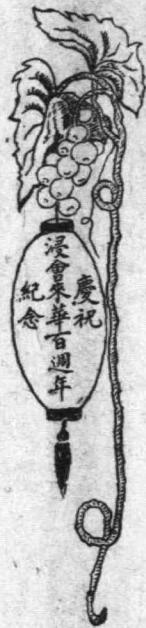 慶祝
浸會來華百週年
紀念